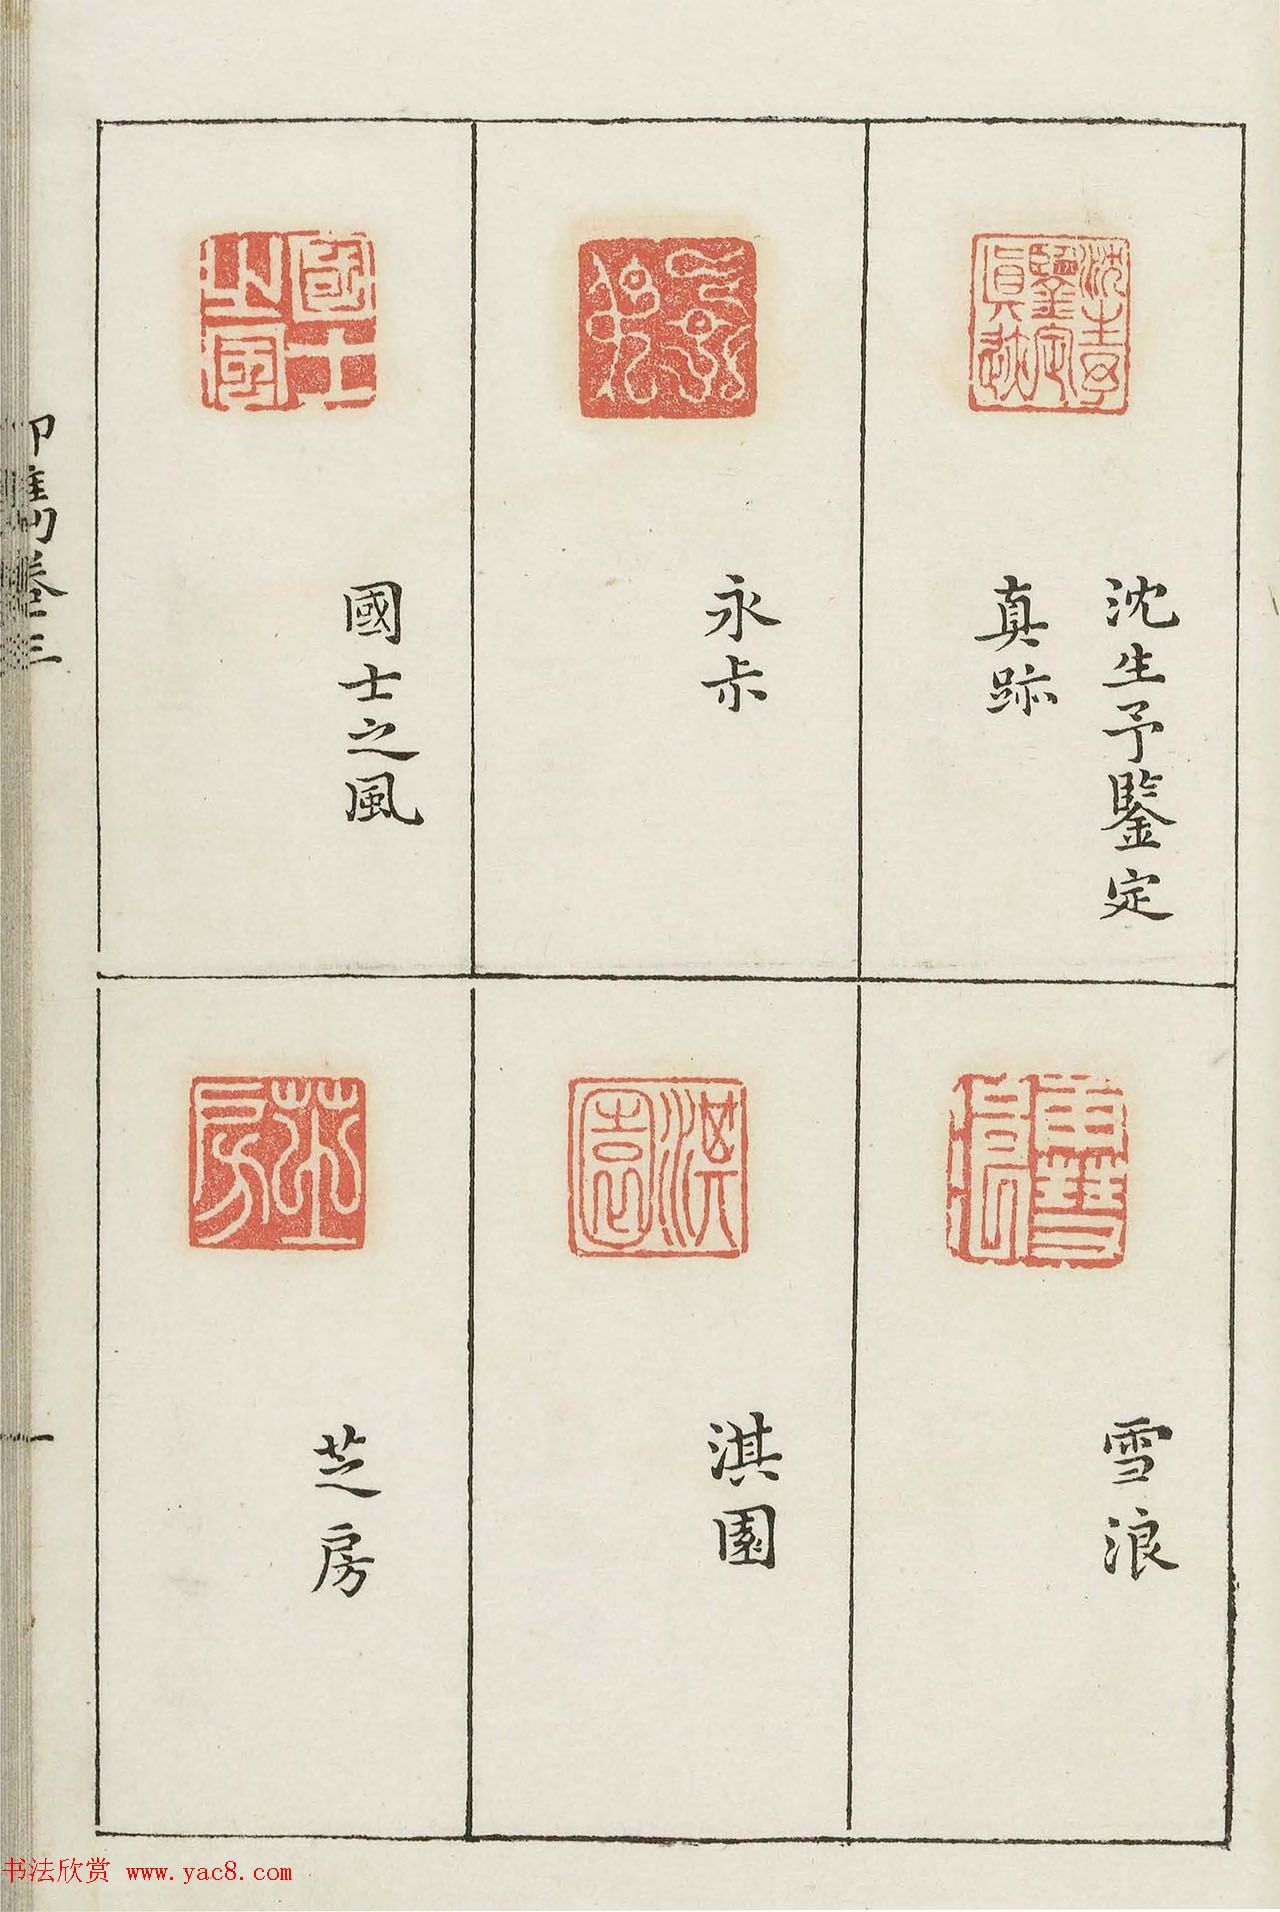 沈生予鑒定
真跡
永尗
國士之風
雪浪
淇園
芝房
卷三
一
书法欣赏 www.yac8.com